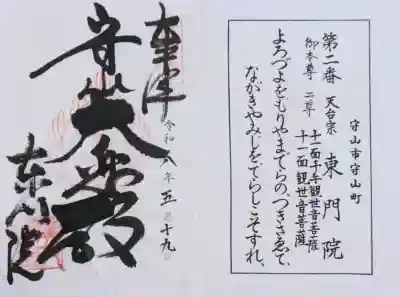 守山市守山町
第二番 天台宗 東門院
御本尊 二尊
十一面千手観世音菩薩
十一面観世音菩薩
よろづよをもりやまでらの、つきさゑて、
なかきやみじをてらしこそすれ、
奉拝
令和八年五月十九
大悲殿
東門院